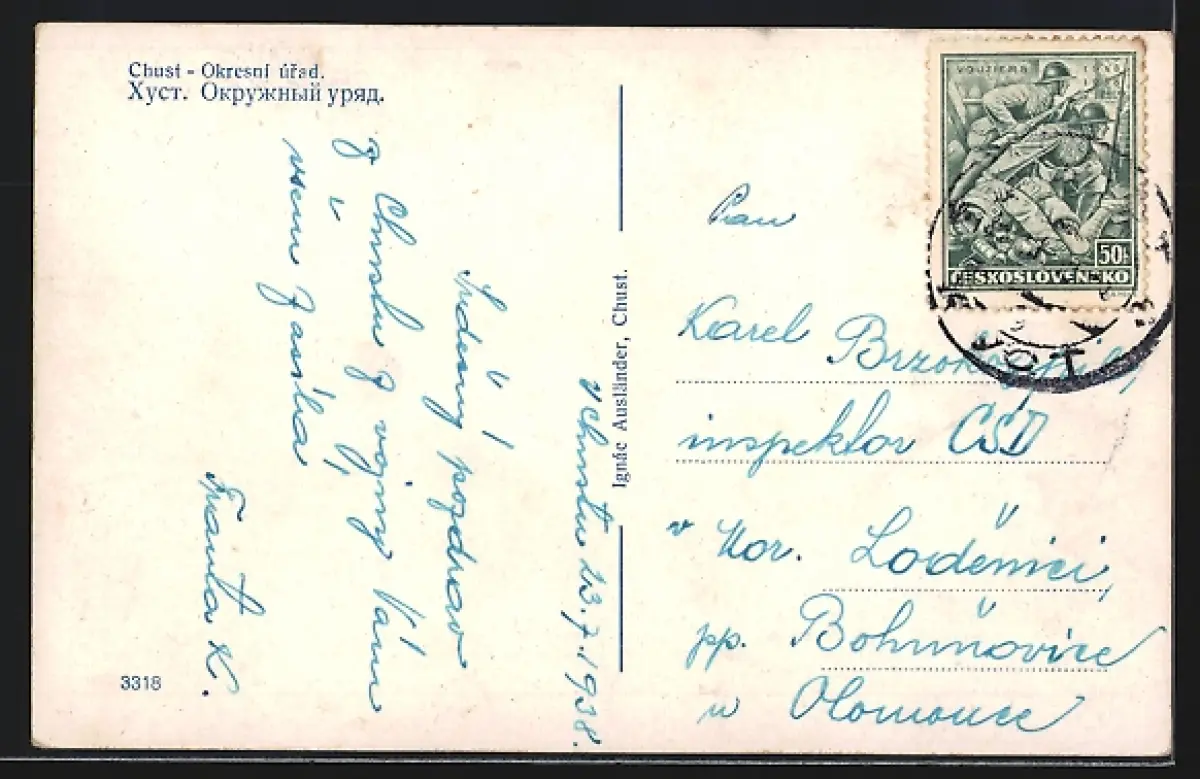 Chust - Okresní úřad.
Хуст. Окружный уряд.
v Chustu 23.7.1938.
Srdečný pozdrav
z Chustu z vojny Vám
všem zasílá
Franta K.
3318
Ignác Ausländer, Chust.
VOUZIERS
50h
ČESKOSLOVENSKO
Pan
Karel
inspektor ČSD
v Mor. Loděnici,
pp. Bohuňovice
u Olomouce